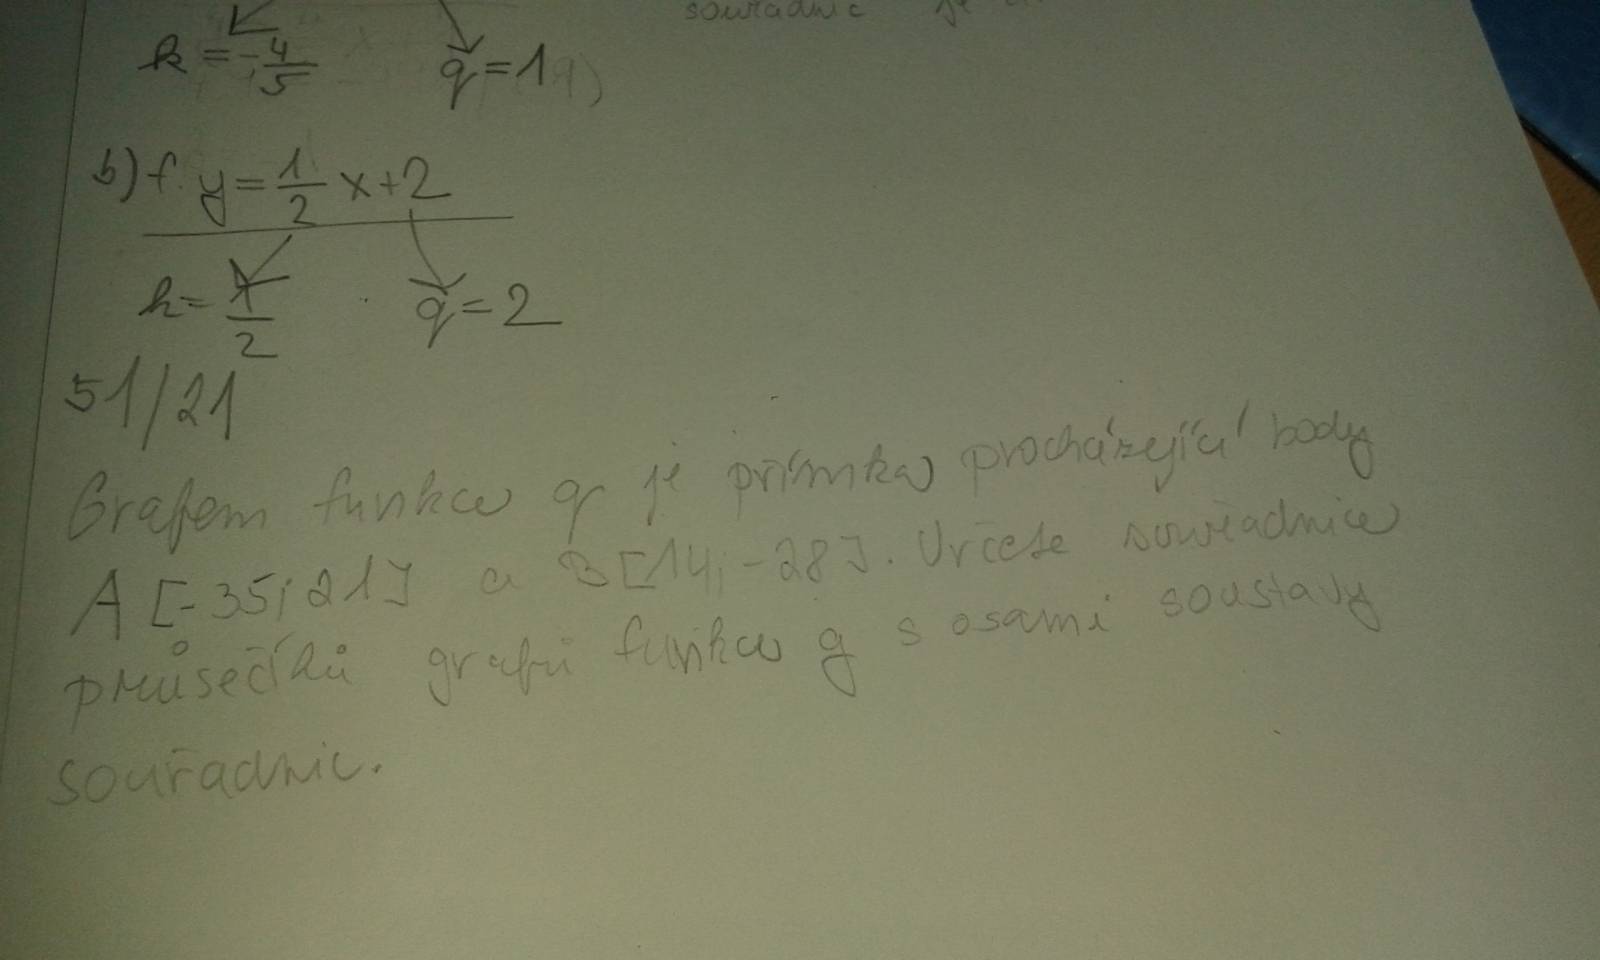 souřadnic je
k = -4/5 q = 1
b) f: y = 1/2 x + 2
k = 1/2 q = 2
51/21
Grafem funkce g je přímka procházející body
A [-35; 21] a B [14; -28]. Určete souřadnice
průsečíků grafů funkce g s osami soustavy
souřadnic.